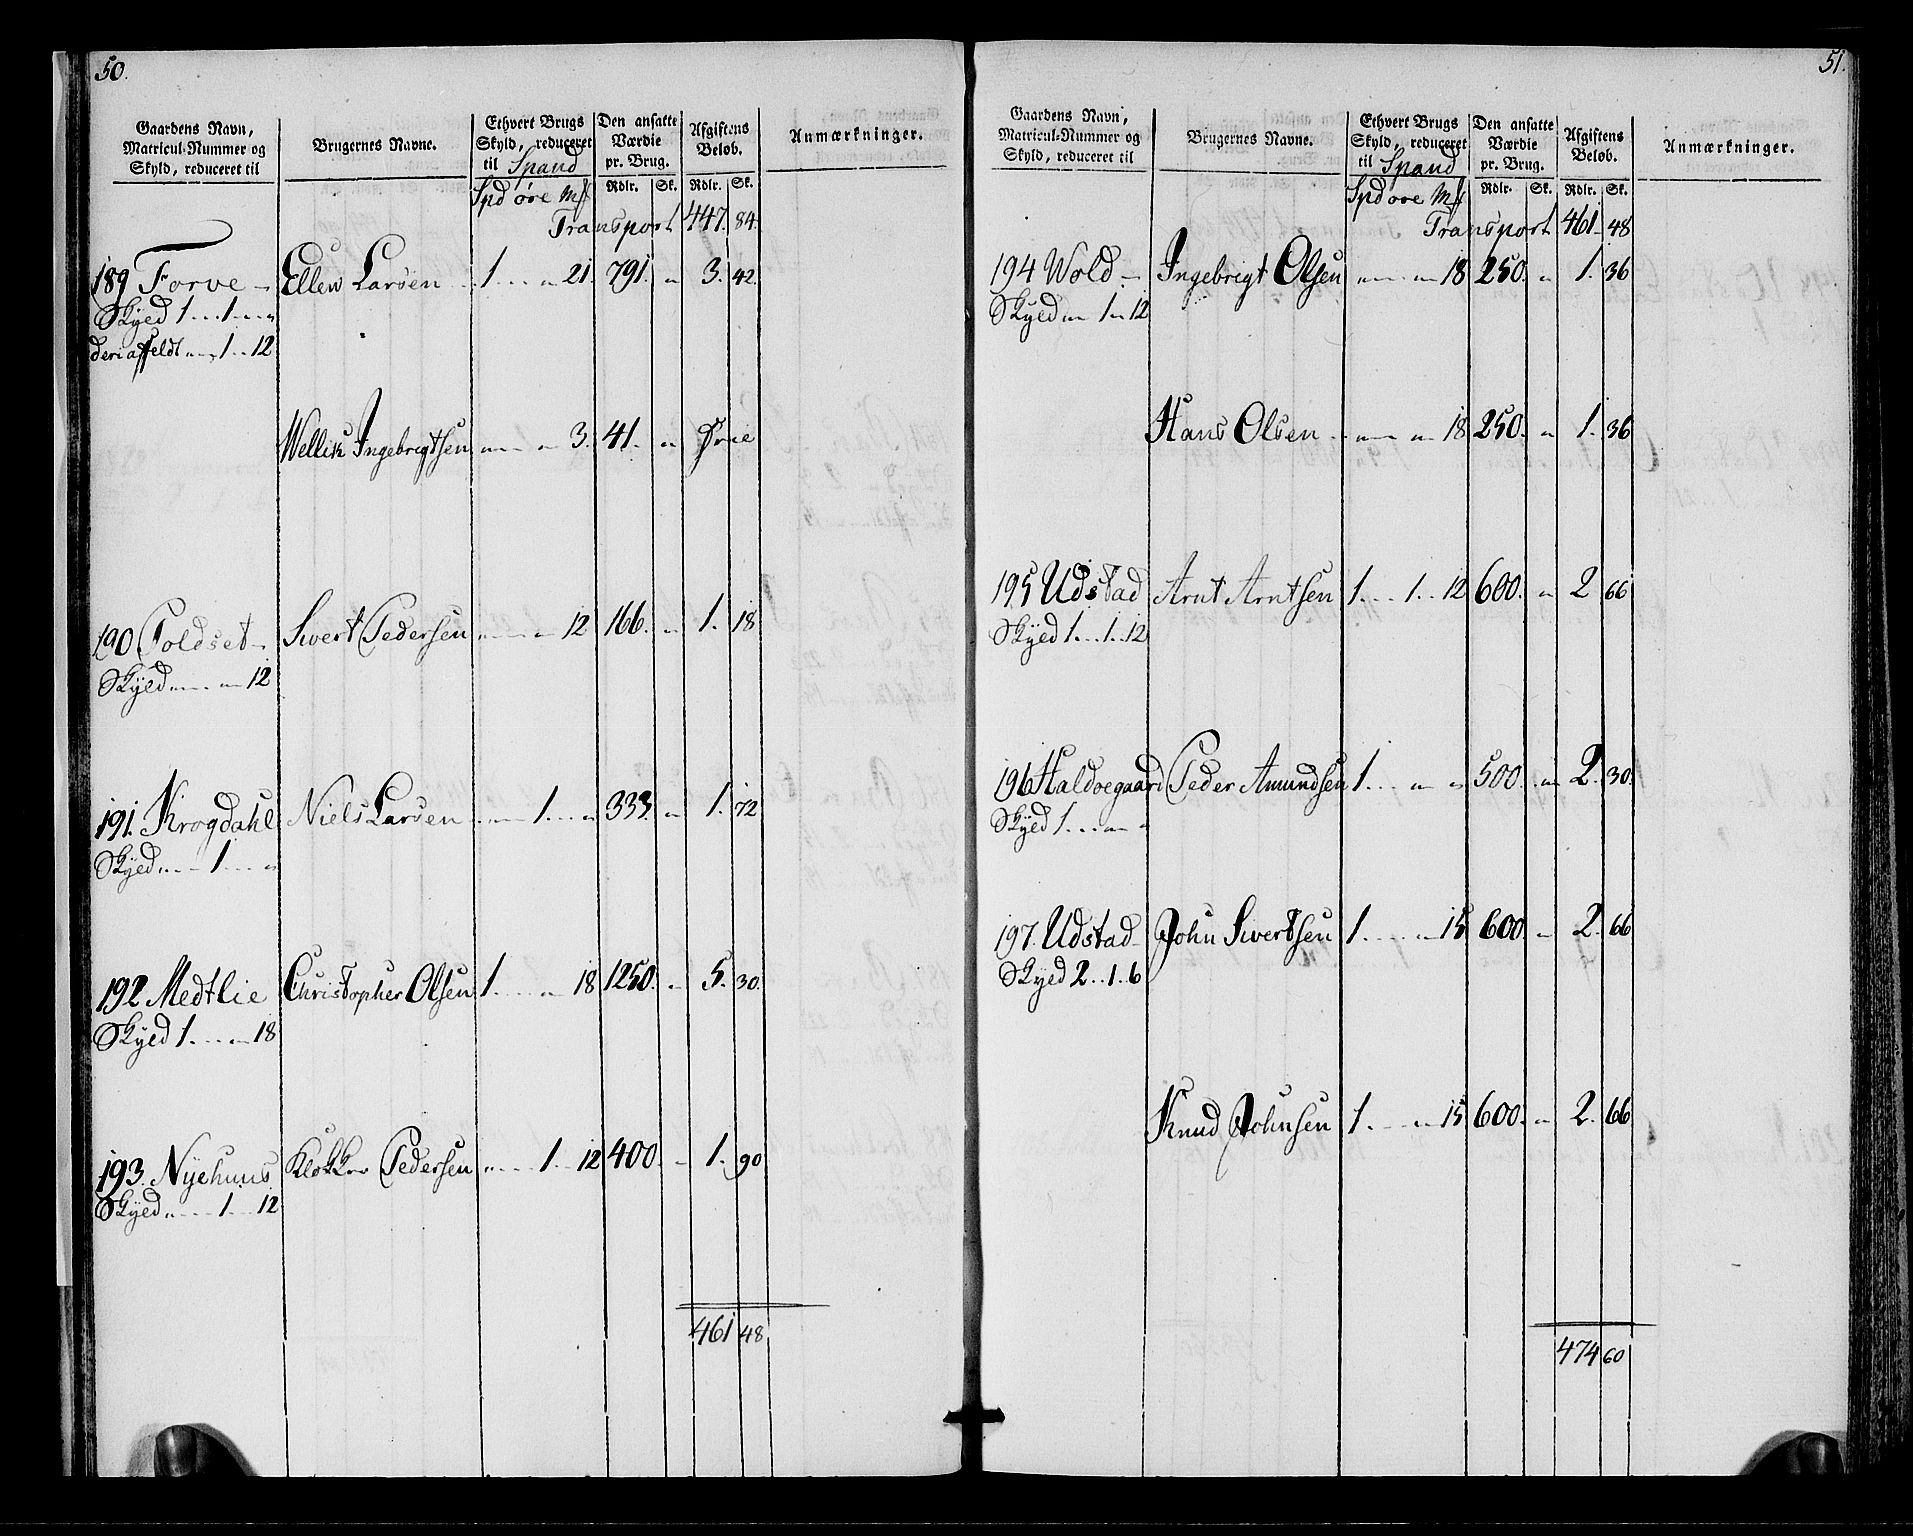 50.
Gaardens Navn, Matricul-Nummer og Skyld, reduceret til | Brugernes Navne. | Ethvert Brugs Skyld, reduceret til Spand | Den ansatte Værdie pr. Brug. | Afgiftens Beløb. | Anmærkninger.
Spd øre Mſ | Rdlr. | Sk. | Rdlr. | Sk.
Transport 447. 84.
189 Forve – Ellen Larsen 1 . . . . „ 21. 791. „ 3. 42.
Skyld 1 . . . 1 . . . „
deri affeldt „ . . . 1 . . 12
Wellik Ingebrigtsen „ „ 3. 41. „ Frie
190 Toldset – Sivert Pedersen „ „ 12 166. „ 1. 18
Skyld „ . . . „ 12
191. Krogdahl Niels Larsen „ 1. . . „ 333. „ 1. 72
Skyld „ . . 1 . . . „
192 Medtlie Christopher Olsen 1 . . . . „ 18 1250. „ 5. 30.
Skyld 1 . . . „ 18
193. Nyehuus Klokker Pedersen „ . . . 1 . . 12 400. „ 1. 90
Skyld „ . . . 1 . . . 12
461 48
51.
Gaardens Navn, Matricul-Nummer og Skyld, reduceret til | Brugernes Navne. | Ethvert Brugs Skyld, reduceret til Spand | Den ansatte Værdie pr. Brug. | Afgiftens Beløb. | Anmærkninger.
Spd øre Mſ | Rdlr. | Sk. | Rdlr. | Sk.
Transport 461 48
194 Wold – Ingebrigt Olsen „ „ 18 250. „ 1. 36
Skyld „ 1 „ 12
Hans Olsen „ „ 18 250. „ 1. 36
195 Udstad Arnt Arntsen 1 . . . . 1 . . 12 600. „ 2 66
Skyld 1 . . . 1 . . 12
196 Haldoegaard Peder Amundsen 1 . . . „ „ 500. „ 2. 30.
Skyld 1 . . . „ „
197. Udstad – John Sivertsen 1 . . . . „ 15 600. „ 2. 66
Skyld 2 . . 1 . 6
Knud Johnsen 1 . . . „ 15 600. „ 2. 66
474 60